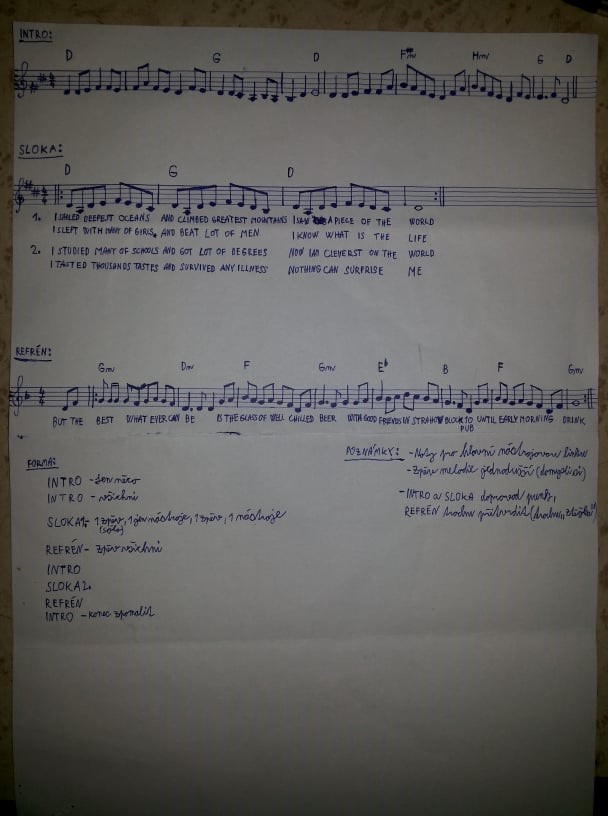 INTRO:
D G D F#m Hmi G D
SLOKA:
D G D
1. I SAILED DEEPEST OCEANS AND CLIMBED GREATEST MOUNTAINS I SAW A PIECE OF THE WORLD
I SLEPT WITH MANY OF GIRLS, AND BEAT LOT OF MEN I KNOW WHAT IS THE LIFE
2. I STUDIED MANY OF SCHOOLS AND GOT LOT OF DEGREES NOW IAM CLEVERST ON THE WORLD
I TASTED THOUSANDS TASTES AND SURVIVED ANY ILLNESS NOTHING CAN SURPRISE ME
REFRÉN:
Gmi Dmi F Gmi Eb B F Gmi
BUT THE BEST WHAT EVER CAN BE IS THE GLASS OF WELL CHILLED BEER WITH GOOD FRIENDS IN STRAHOV BLOCK TO UNTIL EARLY MORNING DRINK
PUB
FORMA:
INTRO - jen něco
INTRO - všichni
SLOKA1 - 1 zpěv, 1 jen nástroje, 1 zpěv, 1 nástroje
(sólo)
REFRÉN - zpěv všichni
INTRO
SLOKA2.
REFRÉN
INTRO - konec zpomalit
POZNÁMKY: - Noty pro hlavní nástrojovou linku
- Zpěv melodie jednodušší (domyslí se)
- INTRO a SLOKA doprovod punk,
REFRÉN trochu přitvrdit (trochu